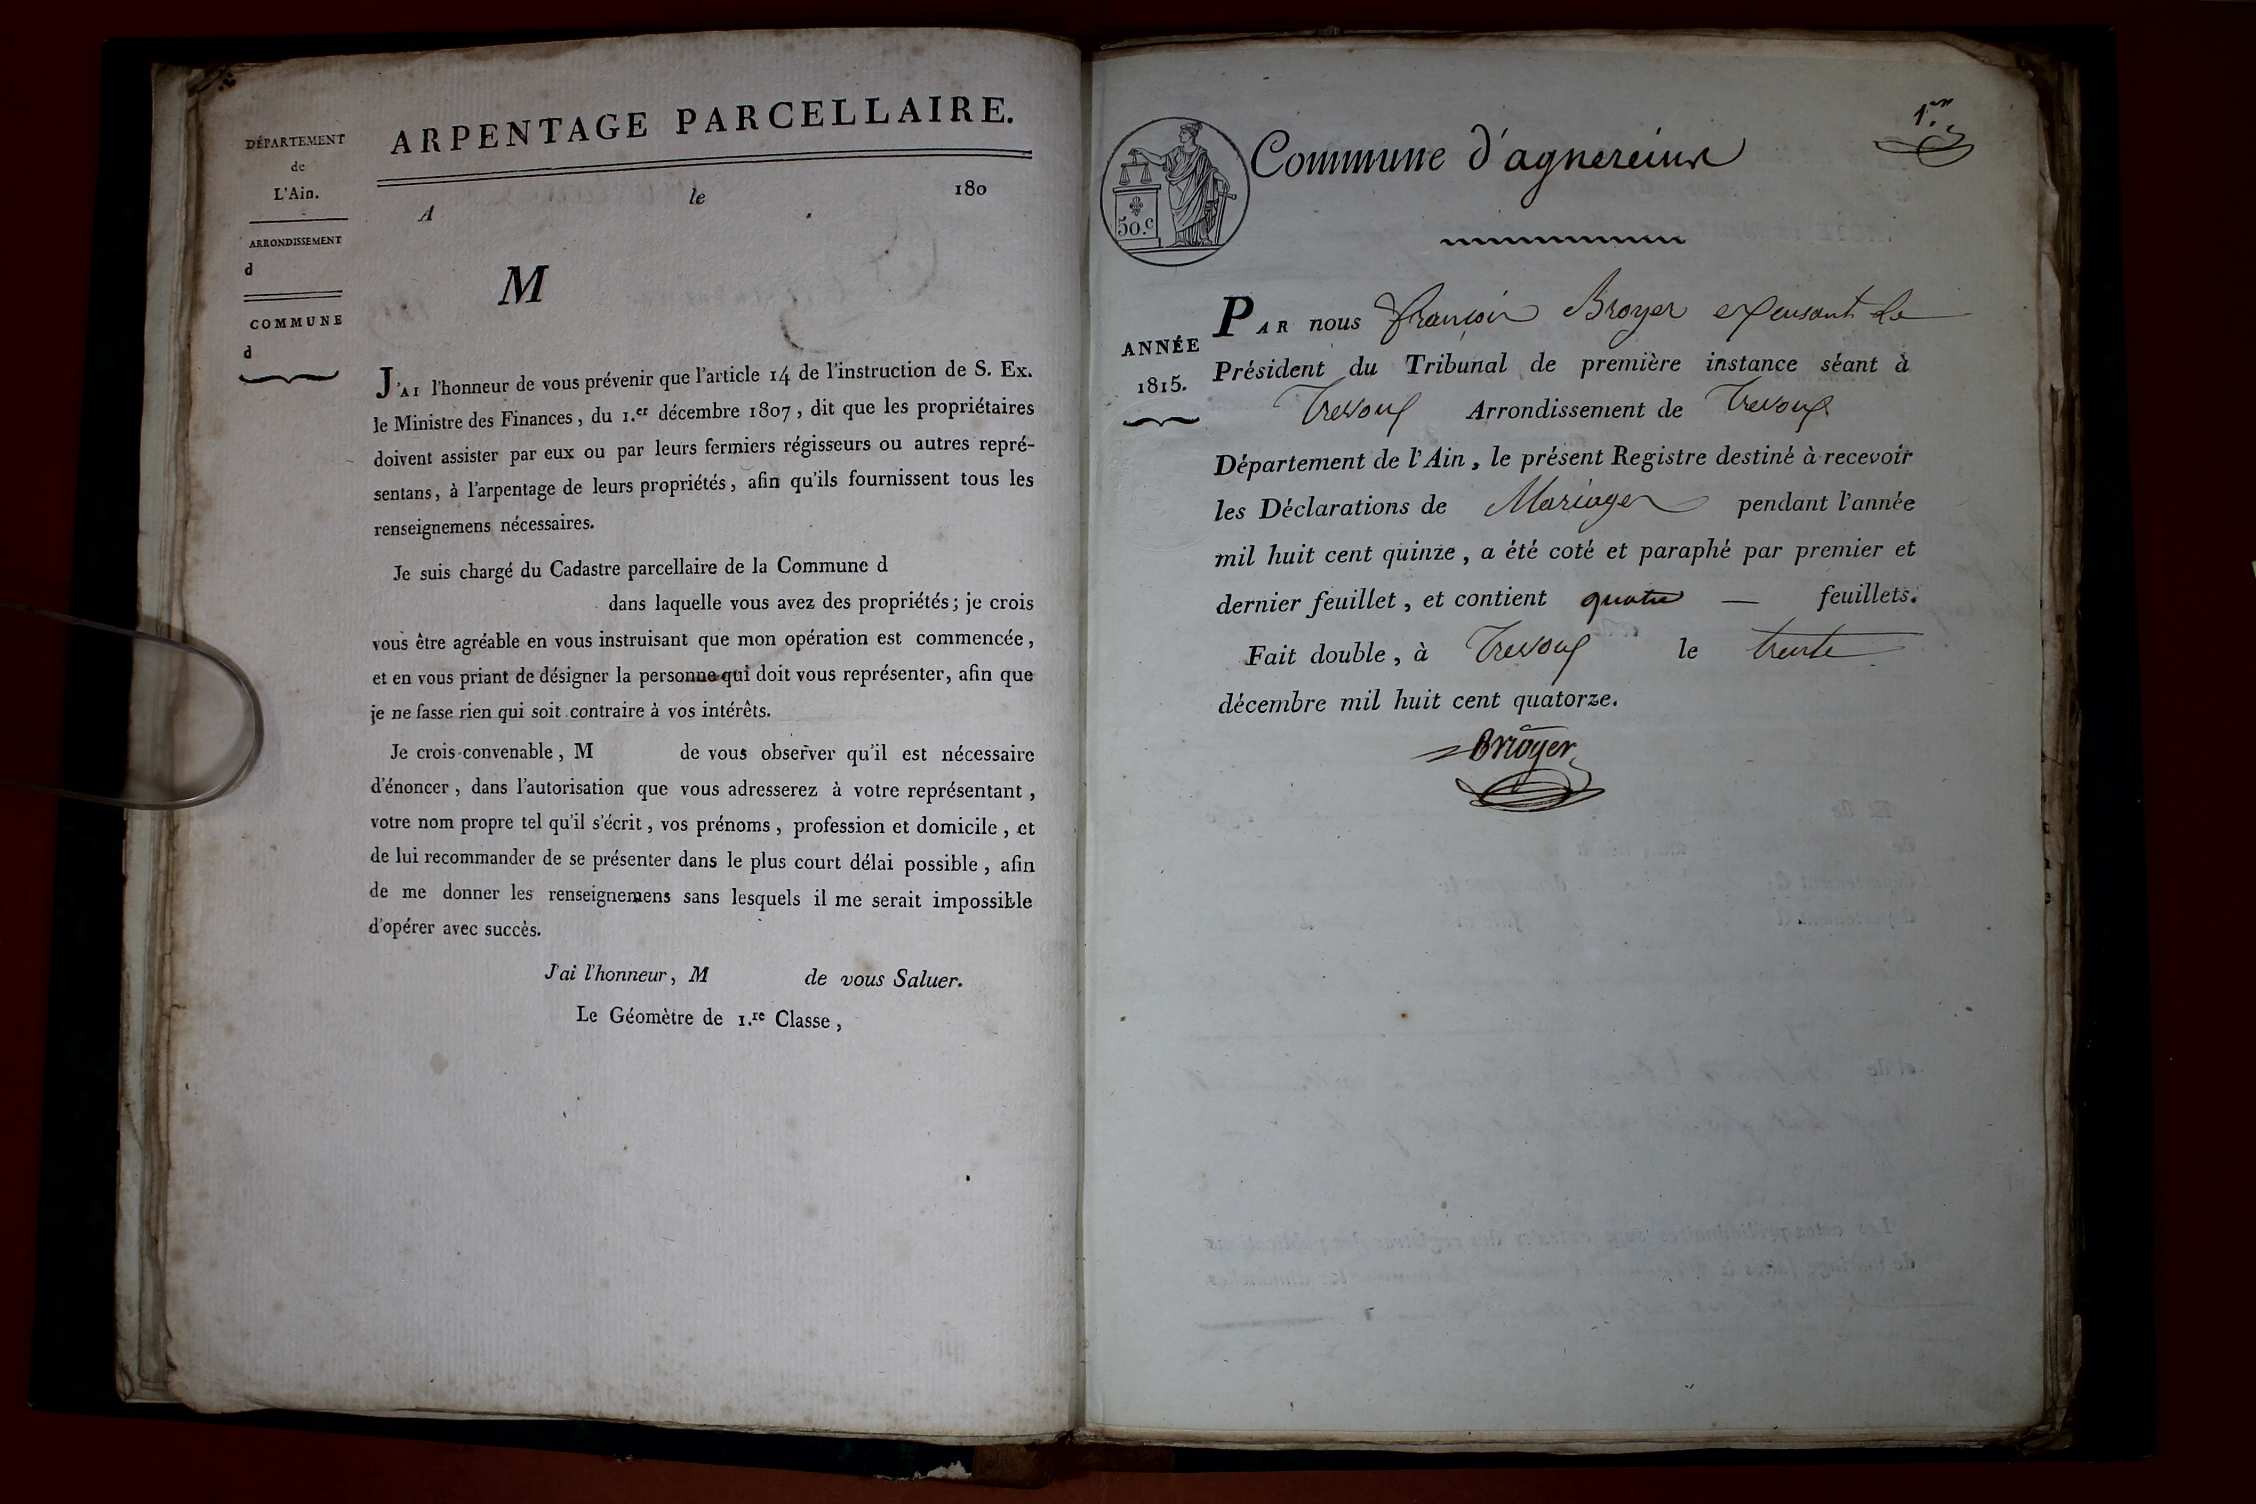 DÉPARTEMENT
de
L'Ain.
ARRONDISSEMENT
d
COMMUNE
d
ARPENTAGE PARCELLAIRE.
A le 180
M
J'AI l'honneur de vous prévenir que l'article 14 de l'instruction de S. Ex.
le Ministre des Finances, du 1.er décembre 1807, dit que les propriétaires
doivent assister par eux ou par leurs fermiers régisseurs ou autres repré-
sentans, à l'arpentage de leurs propriétés, afin qu'ils fournissent tous les
renseignemens nécessaires.
Je suis chargé du Cadastre parcellaire de la Commune d
dans laquelle vous avez des propriétés; je crois
vous être agréable en vous instruisant que mon opération est commencée,
et en vous priant de désigner la personne qui doit vous représenter, afin que
je ne fasse rien qui soit contraire à vos intérêts.
Je crois convenable, M de vous observer qu'il est nécessaire
d'énoncer, dans l'autorisation que vous adresserez à votre représentant,
votre nom propre tel qu'il s'écrit, vos prénoms, profession et domicile, et
de lui recommander de se présenter dans le plus court délai possible, afin
de me donner les renseignemens sans lesquels il me serait impossible
d'opérer avec succès.
J'ai l'honneur, M de vous Saluer.
Le Géomètre de 1.re Classe,
1.er
50.c
Commune d'agnereins
ANNÉE
1815.
PAR nous françois Broyer
Président du Tribunal de première instance séant à
Trevoux Arrondissement de Trevoux
Département de l'Ain, le présent Registre destiné à recevoir
les Déclarations de Mariages pendant l'année
mil huit cent quinze, a été coté et paraphé par premier et
dernier feuillet, et contient quatre — feuillets.
Fait double, à Trevoux le trente
décembre mil huit cent quatorze.
Broyer